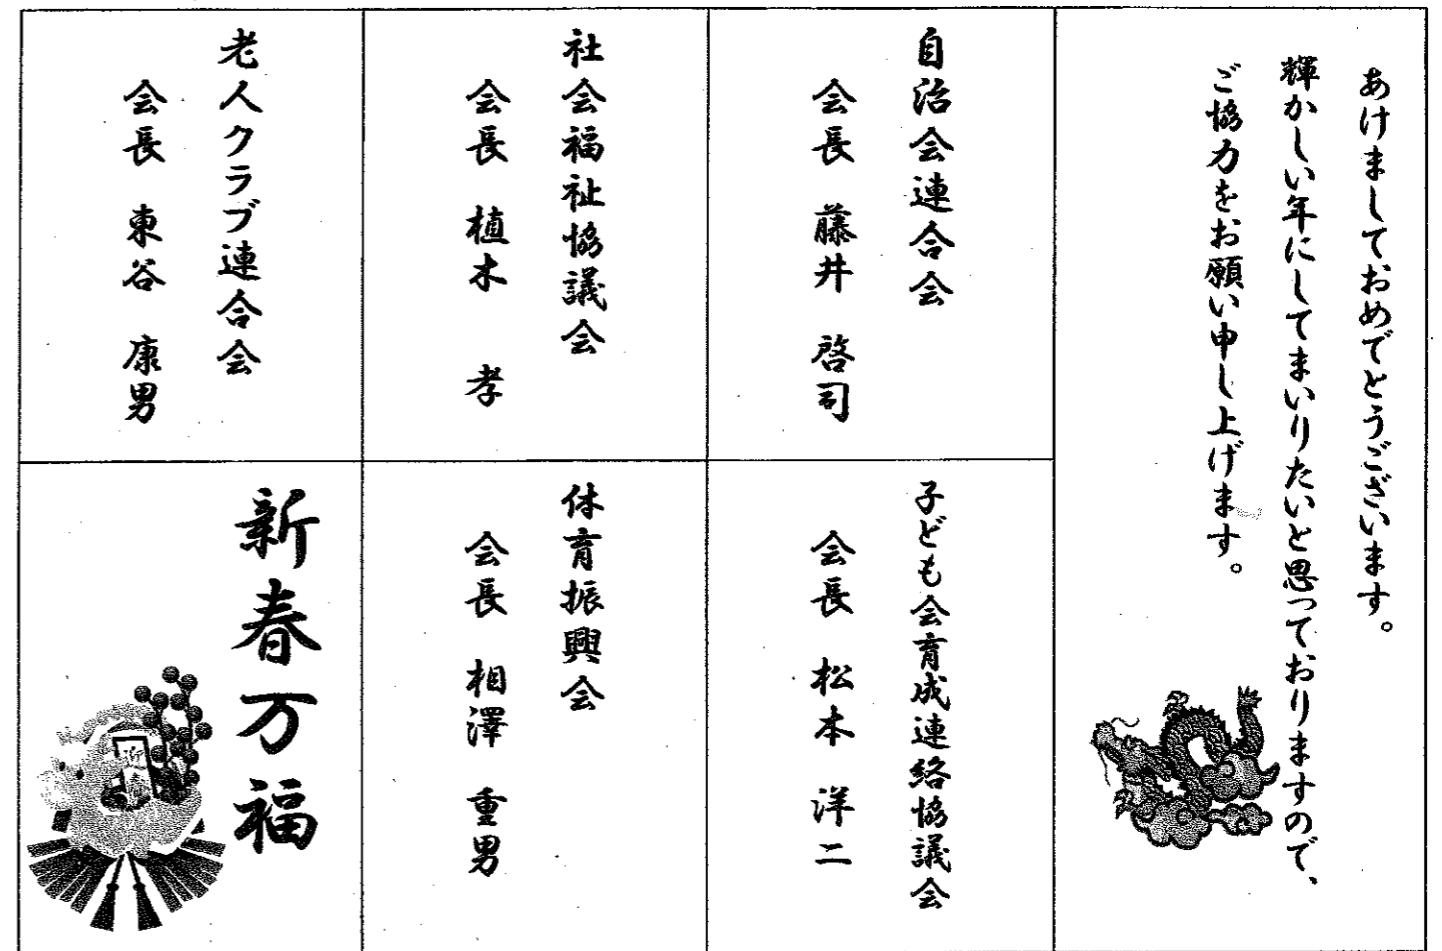 あけましておめでとうございます。
輝かしい年にしてまいりたいと思っておりますので、
ご協力をお願い申し上げます。
自治会連合会
会長 藤井 啓司
子ども会育成連絡協議会
会長 松本 洋二
社会福祉協議会
会長 植木 孝
体育振興会
会長 相澤 重男
老人クラブ連合会
会長 東谷 康男
新春万福